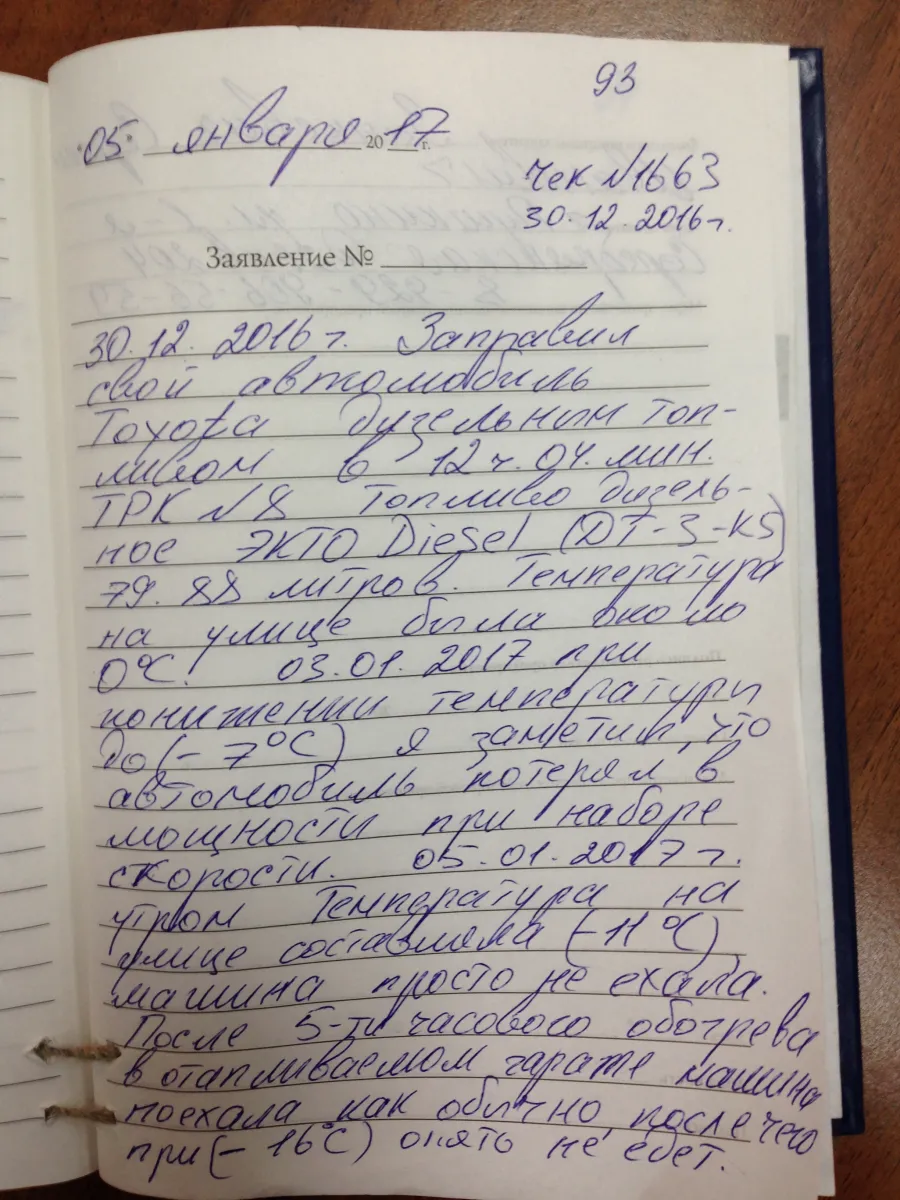 93
"05" января 2017 г.
Чек №1663
30.12.2016г.
Заявление №
30.12.2016г. Заправил
свой автомобиль
Toyota дизельным топ-
ливом в 12ч.04.мин.
ТРК №8 Топливо дизель-
ное ЭКТО Diesel (DT-З-К5)
79.88 литров. Температура
на улице была около
0°С. 03.01.2017 при
понижении температуры
до (-7°С) я заметил, что
автомобиль потерял в
мощности при наборе
скорости. 05.01.2017г.
утром Температура на
улице составляла (-11°С),
машина просто не ехала.
После 5-ти часового обогрева
в отапливаемом гараже машина
поехала как обычно, после чего
при (-16°С) опять не едет.